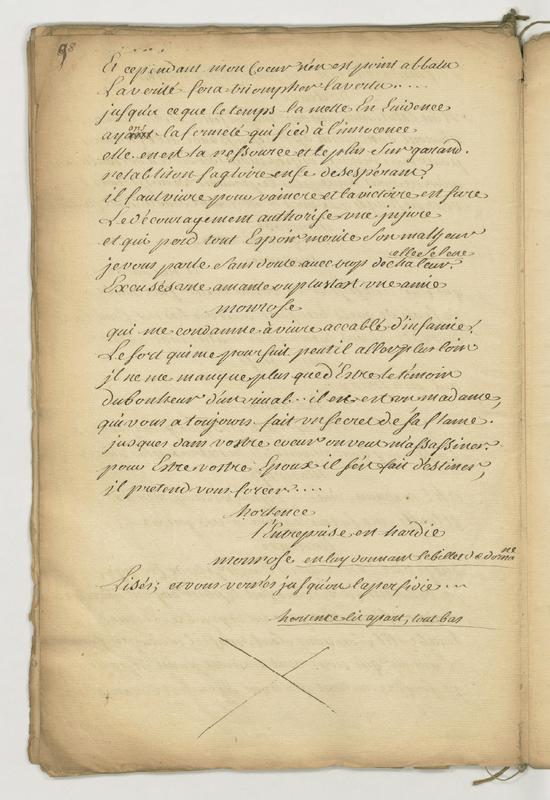 98
Et cependant mon Coeur n'en est point abbatu
La verité fera triompher la vertu....
jusqu'a ce que le temps la mette En Evidence
ayons la fermeté qui sied à l'innocence
elle en est la ressource et le plus Sur garand.
retablit on sa gloire en se desespérant?
il faut vivre pour vaincre et la victoire est sure
Le découragement authorise une injure
et qui perd tout Espoir merite Son malheur
elle se leve
je vous parle Sans doute avec trop de chaleur.
Excusés une amante ou plustost une amie
monrose
qui me condamne à vivre accablé d'infamie!
Le sort qui me poursuit peut il aller plus loin
il ne me manque plus que d'Estre le témoin
du bonheur d'un rival... il en est un madame,
qui vous a toujours fait un secret de sa flame.
jusques dans vostre coeur on veut m'assassiner.
pour Estre vostre Epoux il s'est fait destiner,
il pretend vous forcer....
hortence
l'Entreprise est hardie
monrose en luy donnant le billet de
Lisés; et vous verrés jusqu'ou la perfidie...
hortence lit apart, tout bas